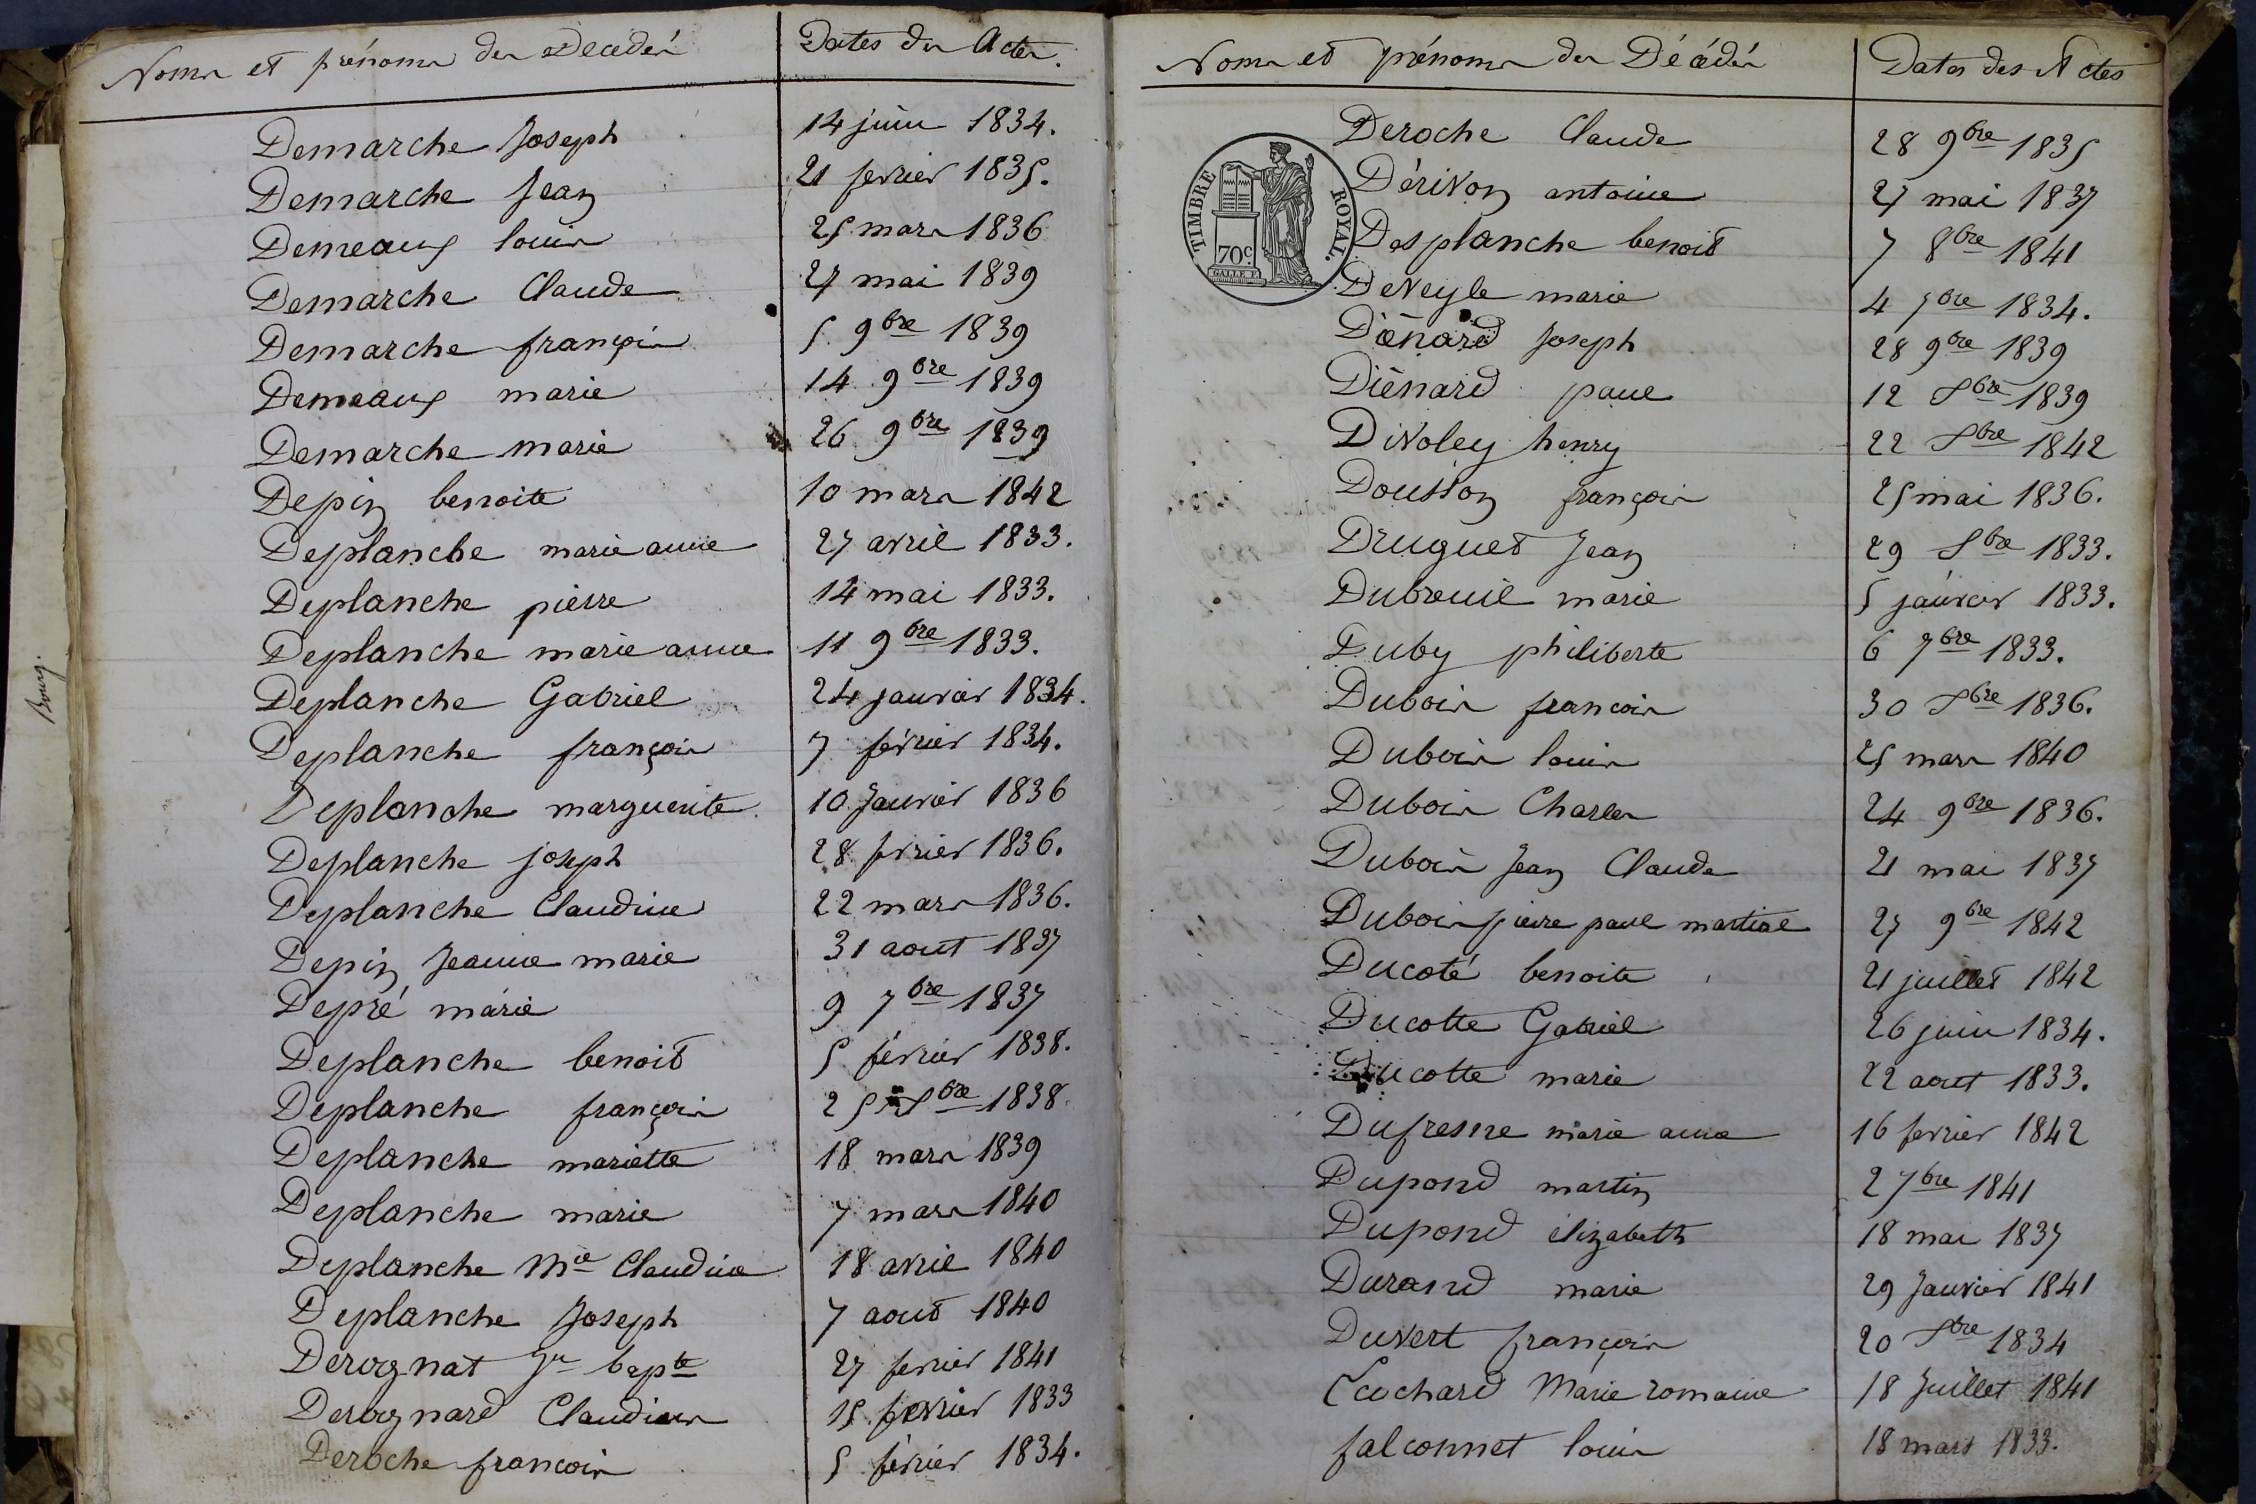 Noms et prénoms des Décédés
Dates des Actes.
Demarche Joseph 14 juin 1834.
Demarche Jean 21 fevrier 1835.
Demeaux louis 25 mars 1836
Demarche Claude 27 mai 1839
Demarche françois 5 9bre 1839
Demeaux marie 14 9bre 1839
Demarche marie 26 9bre 1839
Depin benoite 10 mars 1842
Deplanche marie anne 27 avril 1833.
Deplanche pierre 14 mai 1833.
Deplanche marie anne 11 9bre 1833.
Deplanche Gabriel 24 janvier 1834.
Deplanche françois 7 février 1834.
Deplanche marguerite 10 Janvier 1836
Deplanche joseph 28 fevrier 1836.
Deplanche Claudine 22 mars 1836.
Depin Jeanne marie 31 aout 1837
Depré marie 9 7bre 1837
Deplanche benoit 5 février 1838.
Deplanche françois 25 8bre 1838
Deplanche mariette 18 mars 1839
Deplanche marie 7 mars 1840
Deplanche Mie Claudine 18 avril 1840
Deplanche Joseph 7 aout 1840
Derognat Jn bapte 27 fevrier 1841
Derognard Claudine 15 fevrier 1833
Deroche francois 5 février 1834.
Bourg.
Noms et prénoms des Décédés
Dates des Actes
TIMBRE ROYAL.
70c
GALLE F.
Deroche Claude 28 9bre 1835
Dérivon antoine 27 mai 1837
Desplanche benoit 7 8bre 1841
Deveyle marie 4 7bre 1834.
Diénard Joseph 28 9bre 1839
Diénard paul 12 8bre 1839
Divoley henry 22 8bre 1842
Dousson françois 25 mai 1836.
Druguet Jean 29 8bre 1833.
Dubreuil marie 5 janvier 1833.
Duby philiberte 6 7bre 1833.
Dubois francois 30 8bre 1836.
Dubois louis 25 mars 1840
Dubois Charles 24 9bre 1836.
Dubois Jean Claude 21 mai 1837
Dubois pierre paul martial 27 9bre 1842
Ducoté benoite 21 juillet 1842
Ducotte Gabriel 26 juin 1834.
Ducotte marie 22 aout 1833.
Dufresne marie anne 16 fevrier 1842
Dupond martin 2 7bre 1841
Dupond élizabeth 18 mai 1837
Durand marie 29 Janvier 1841
Duvert françois 20 8bre 1834
Ecochard Marie romaine 18 Juillet 1841
falconnet louis 18 mars 1833.